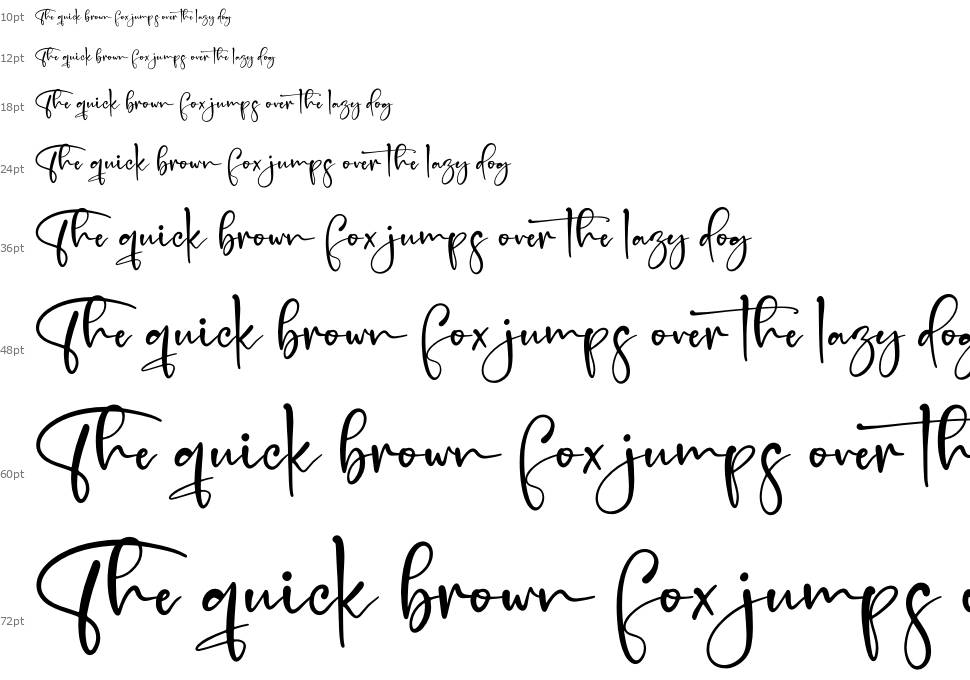 10pt The quick brown fox jumps over the lazy dog
12pt The quick brown fox jumps over the lazy dog
18pt The quick brown fox jumps over the lazy dog
24pt The quick brown fox jumps over the lazy dog
36pt The quick brown fox jumps over the lazy dog
48pt The quick brown fox jumps over the lazy dog
60pt The quick brown fox jumps over th
72pt The quick brown fox jumps